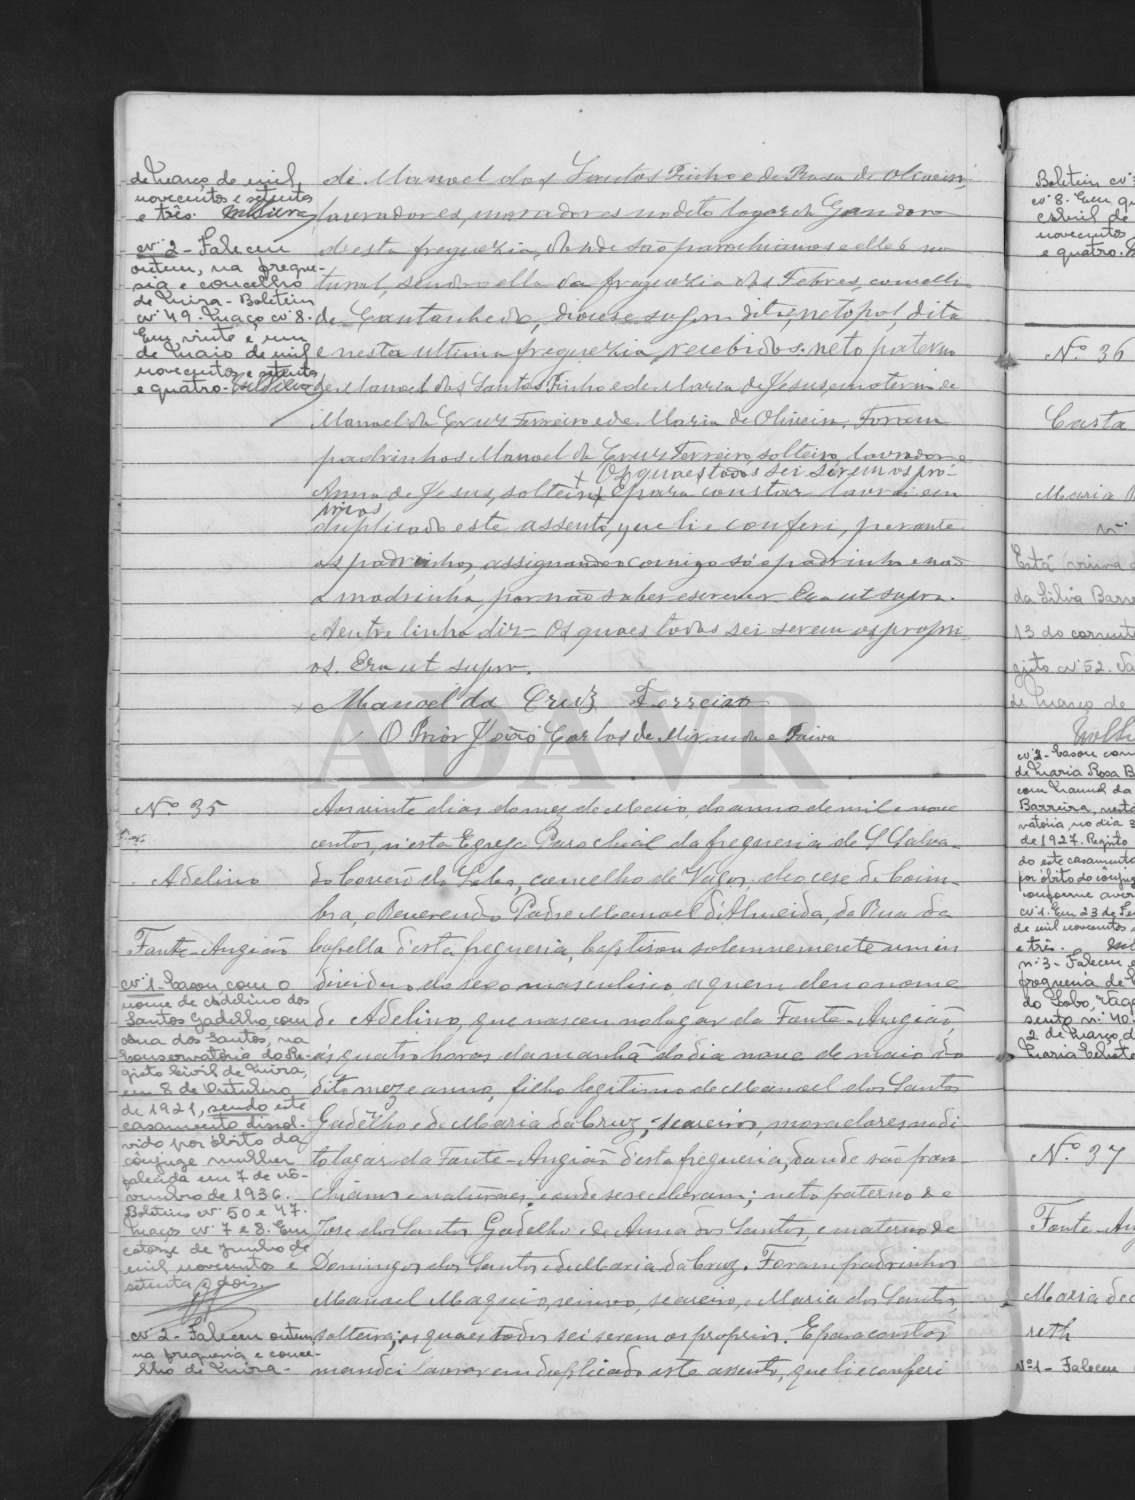 de Março de mil
novecentos e setenta
e três.
nº 2 - Faleceu
ontem, na fregue-
sia e concelho
de Mira - Boletim
nº 49. Maço nº 8.
Em vinte e um
de Maio de mil
novecentos e setenta
e quatro.
de Manoel dos Santos Pinho e de Rosa de Oliveira,
lavradores, moradores no dito logar da Gandara
d'esta freguezia, donde são parochianos e elle é na
tural, sendo ella da freguezia das Febres, concelho
de Cantanhede, diocese
e nesta ultima freguezia, recebidos. neto paterno
de Manoel dos Santos Pinho e de Maria de Jesus, e materno de
Manoel da Cruz Ferreira e de Maria de Oliveira. Foram
padrinhos Manoel da Cruz Ferreira, solteiro, lavrador e
+ Os quaes todos sei serem os pró-
Anna de Jesus, solteira + E para constar lavrei em
prios
duplicado este assento, que li e conferi, perante
os padrinhos, assignando comigo só o padrinho e não
a madrinha, por não saber escrever. Era ut supra.
A entre linha diz - Os quaes todos sei serem os propri-
os. Era ut supra.
Manoel da Cruz Ferreira
O Prior João Carlos de Miranda e Paiva
ADAVR
Nº 35
Adelino
Fonte-Angião
nº 1. Casou com o
nome de Adelino dos
Santos Gadelho, com
Ana dos Santos, na
Conservatória do Re-
gisto Civil de Mira,
em 8 de Outubro
de 1921, sendo este
casamento dissol-
vido por óbito da
cônjuge mulher
falecida em 7 de no-
vembro de 1936.
Boletins nº 50 e 47.
Maços nº 7 e 8. Em
catorze de Junho de
mil novecentos e
setenta e dois.
nº 2 - Faleceu ontem
na freguesia e conce-
lho de Mira -
Aos vinte dias do mez de Maio, do anno de mil e nove
centos, n'esta Egreja Parochial da freguesia de S. Salva-
do Covão do Lobo, concelho de Vagos, diocese de Coim-
bra, o Reverendo Padre Manoel d'Almeida, da Rua da
Capella d'esta freguesia, baptisou solemnemente um in
dividuo do sexo masculino, a quem deu o nome
de Adelino, que nasceu no logar da Fonte-Angião,
ás quatro horas da manhã do dia nove de maio do
dito mez e anno, filho legitimo de Manoel dos Santos
Gadelho e de Maria da Cruz, seareiros, moradores no di
to logar da Fonte-Angião d'esta freguesia, donde são paro
chianos e naturaes, e onde se receberam; neto paterno de
José dos Santos Gadelho e de Anna dos Santos, e materno de
Domingos dos Santos e de Maria da Cruz. Foram padrinhos
Manoel Magueio, viuvo, seareiro, e Maria dos Santos,
solteira; os quaes todos sei serem os proprios. E para constar
mandei lavrar em duplicado este assento, que li e conferi
Nº 36
Casta
Maria
Está viuva
da Silva Barre
13 do corrente
nº 2 - Casou com
de Maria Rosa B
com Manuel da
Barreira, nesta
de 1927. Registo
do este casamento
por óbito do conjuge
conforme aver
nº 1. Em 23 de
de mil novecentos
e três.
nº 3 - Faleceu
freguesia de
do Lobo,
2 de Março d
Nº 37
Fonte-An
Maria de
reth
Nº 1 - Faleceu